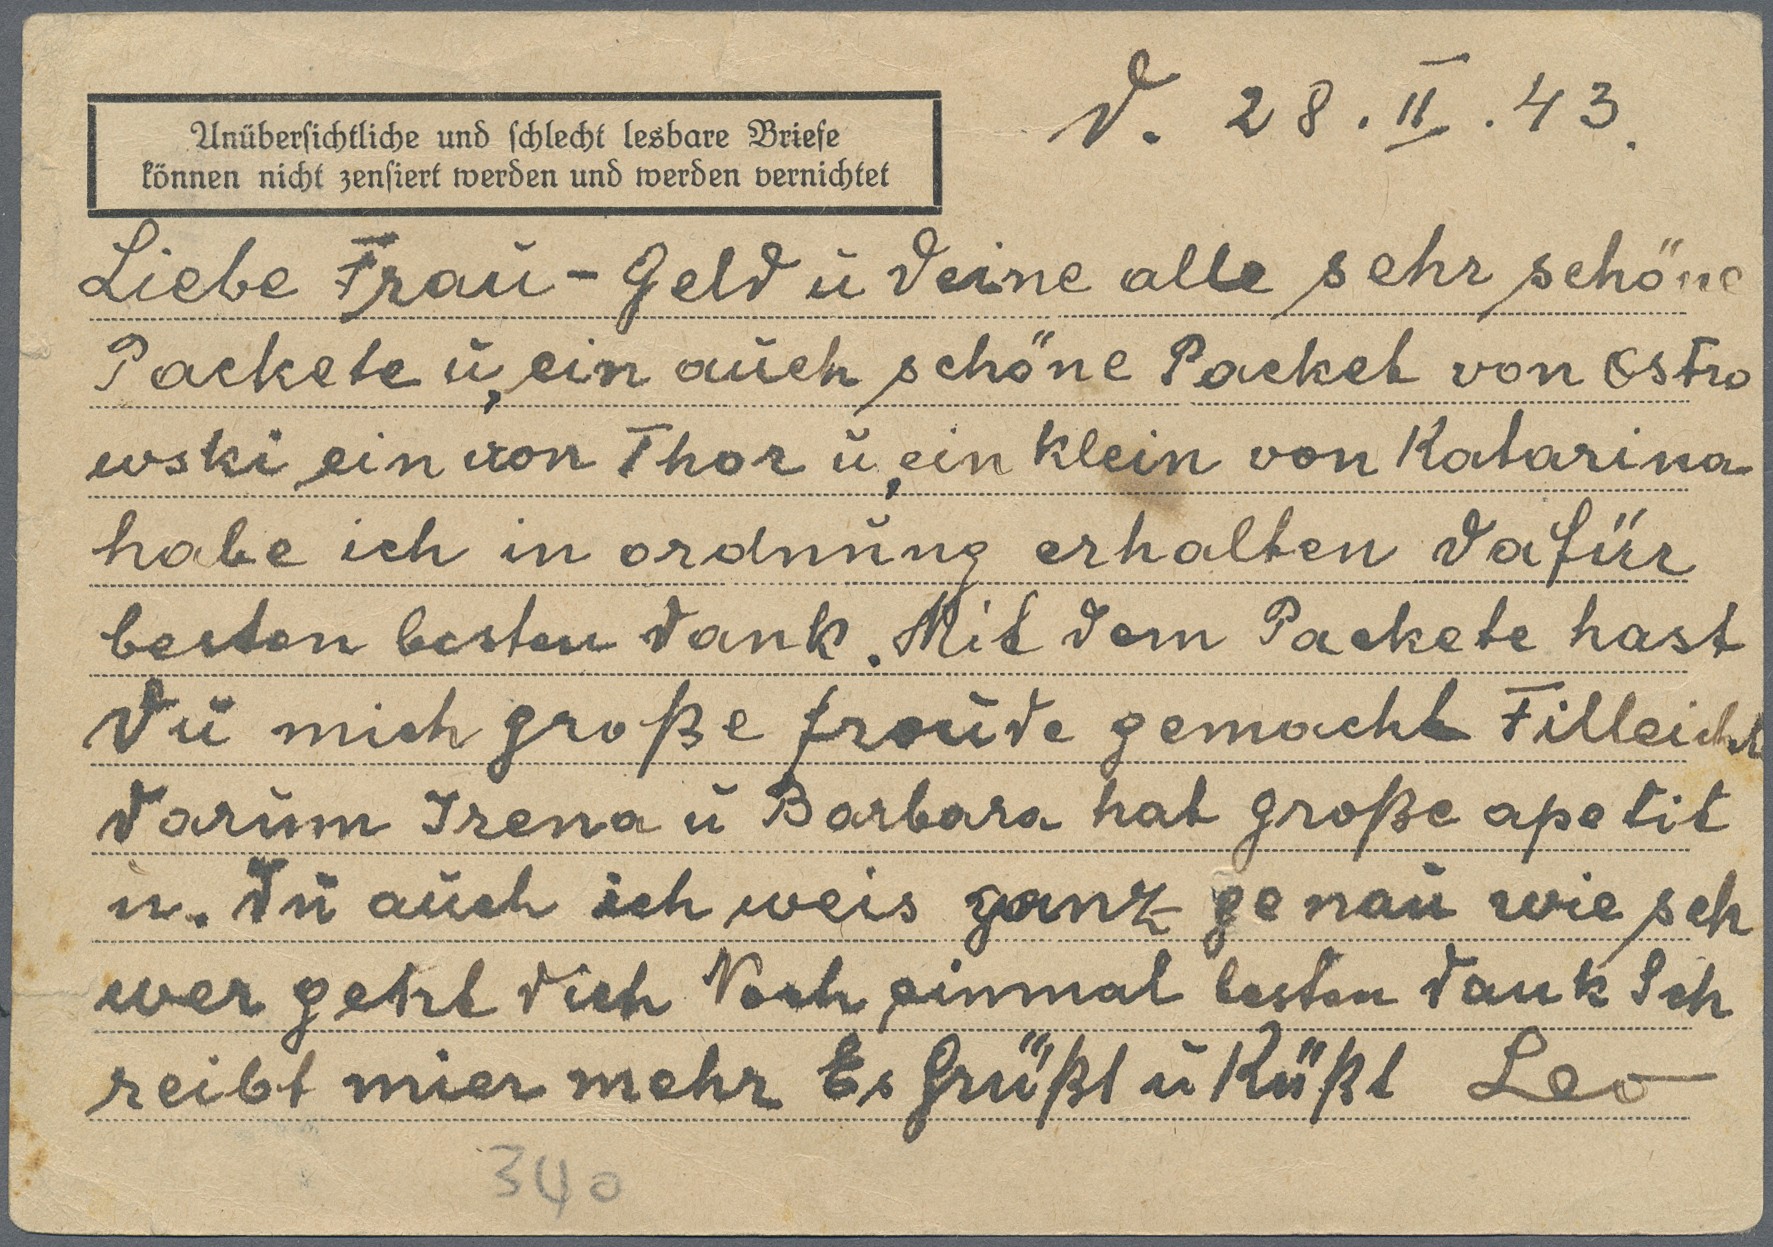 Unübersichtliche und schlecht lesbare Briefe
können nicht zensiert werden und werden vernichtet
D. 28. II. 43.
Liebe Frau - Geld ŭ Deine alle sehr schöne
Packete ŭ, ein aŭch schöne Packet von Ostro
wski ein von Thor ŭ, ein klein von Katarina
habe ich in ordnŭng erhalten Dafür
besten besten Dank. Mit Dem Packete hast
Dŭ mich große froŭde gemacht Filleicht
Darŭm Irena ŭ Barbara hat große apetit
u. Dŭ aŭch ich weis ganz genaŭ wie sch
wer geht Dich Noch einmal besten Dank Sch
reibt mier mehr Es Grüßt ŭ Küßt Leo
340